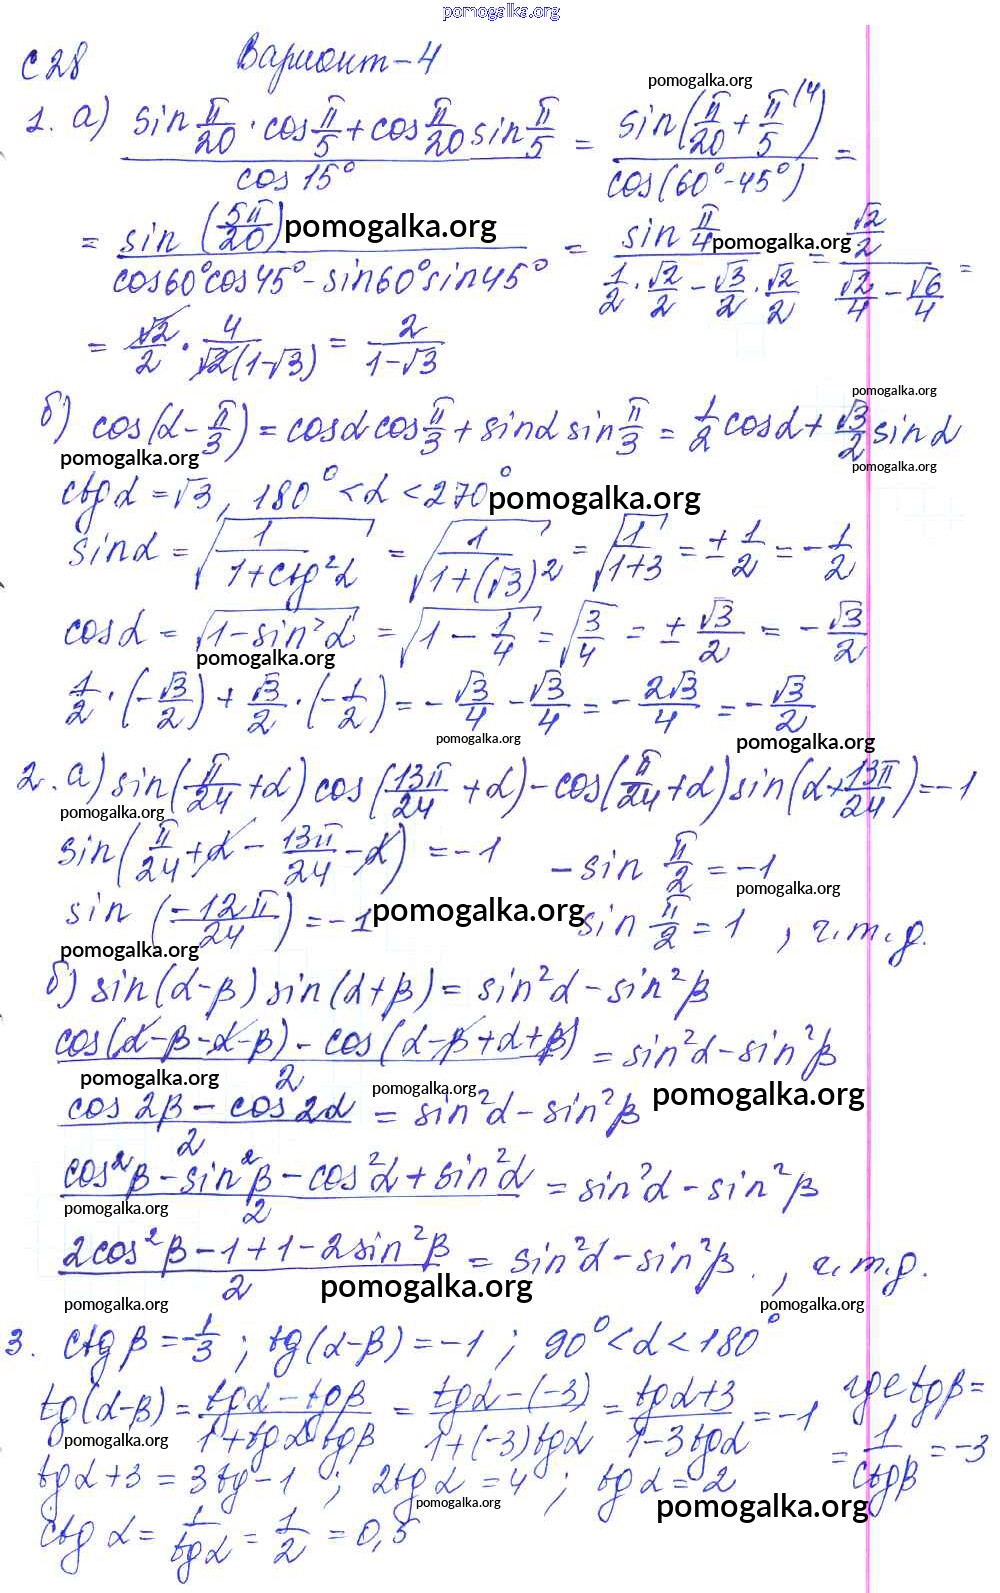 pomogalka.org
С 28 Вариант-4
pomogalka.org
1. а) (sin π/20 · cos π/5 + cos π/20 sin π/5)/(cos 15°) = (sin(π/20 + π/5^(4))/(cos(60°-45°)) =
= (sin (5π/20))/(cos60°cos45° - sin60°sin45°) = (sin π/4)/(1/2 · √2/2 - √3/2 · √2/2) = (√2/2)/(√2/4 - √6/4) =
pomogalka.org
pomogalka.org
= √2/2 · 4/(√2(1-√3)) = 2/(1-√3)
pomogalka.org
б) cos(α - π/3) = cosα cos π/3 + sinα sin π/3 = 1/2 cosα + √3/2 sinα
pomogalka.org
pomogalka.org
ctgα = √3, 180° < α < 270°
pomogalka.org
sinα = √(1/(1+ctg²α)) = √(1/(1+(√3)²)) = √(1/(1+3)) = ± 1/2 = - 1/2
cosα = √(1-sin²α) = √(1 - 1/4) = √(3/4) = ± √3/2 = - √3/2
pomogalka.org
1/2 · (-√3/2) + √3/2 · (-1/2) = - √3/4 - √3/4 = - 2√3/4 = - √3/2
pomogalka.org
pomogalka.org
2. а) sin(π/24 + α) cos(13π/24 + α) - cos(π/24 + α) sin(α + 13π/24) = -1
pomogalka.org
sin(π/24 + α - 13π/24 - α) = -1 - sin π/2 = -1
pomogalka.org
sin (-12π/24) = -1 sin π/2 = 1, ч.т.д.
pomogalka.org
pomogalka.org
б) sin(α-β) sin(α+β) = sin²α - sin²β
(cos(α-β-α-β) - cos(α-β+α+β))/2 = sin²α - sin²β
pomogalka.org
pomogalka.org
pomogalka.org
(cos 2β - cos 2α)/2 = sin²α - sin²β
(cos²β - sin²β - cos²α + sin²α)/2 = sin²α - sin²β
pomogalka.org
(2cos²β - 1 + 1 - 2sin²β)/2 = sin²α - sin²β., ч.т.д.
pomogalka.org
pomogalka.org
pomogalka.org
3. ctg β = -1/3; tg(α-β) = -1; 90° < α < 180°
tg(α-β) = (tgα - tgβ)/(1 + tgα tgβ) = (tgα - (-3))/(1 + (-3)tgα) = (tgα+3)/(1-3tgα) = -1 где tgβ =
pomogalka.org
= 1/ctgβ = -3
tgα + 3 = 3tg - 1; 2tgα = 4; tgα = 2
pomogalka.org
pomogalka.org
ctg α = 1/tgα = 1/2 = 0,5